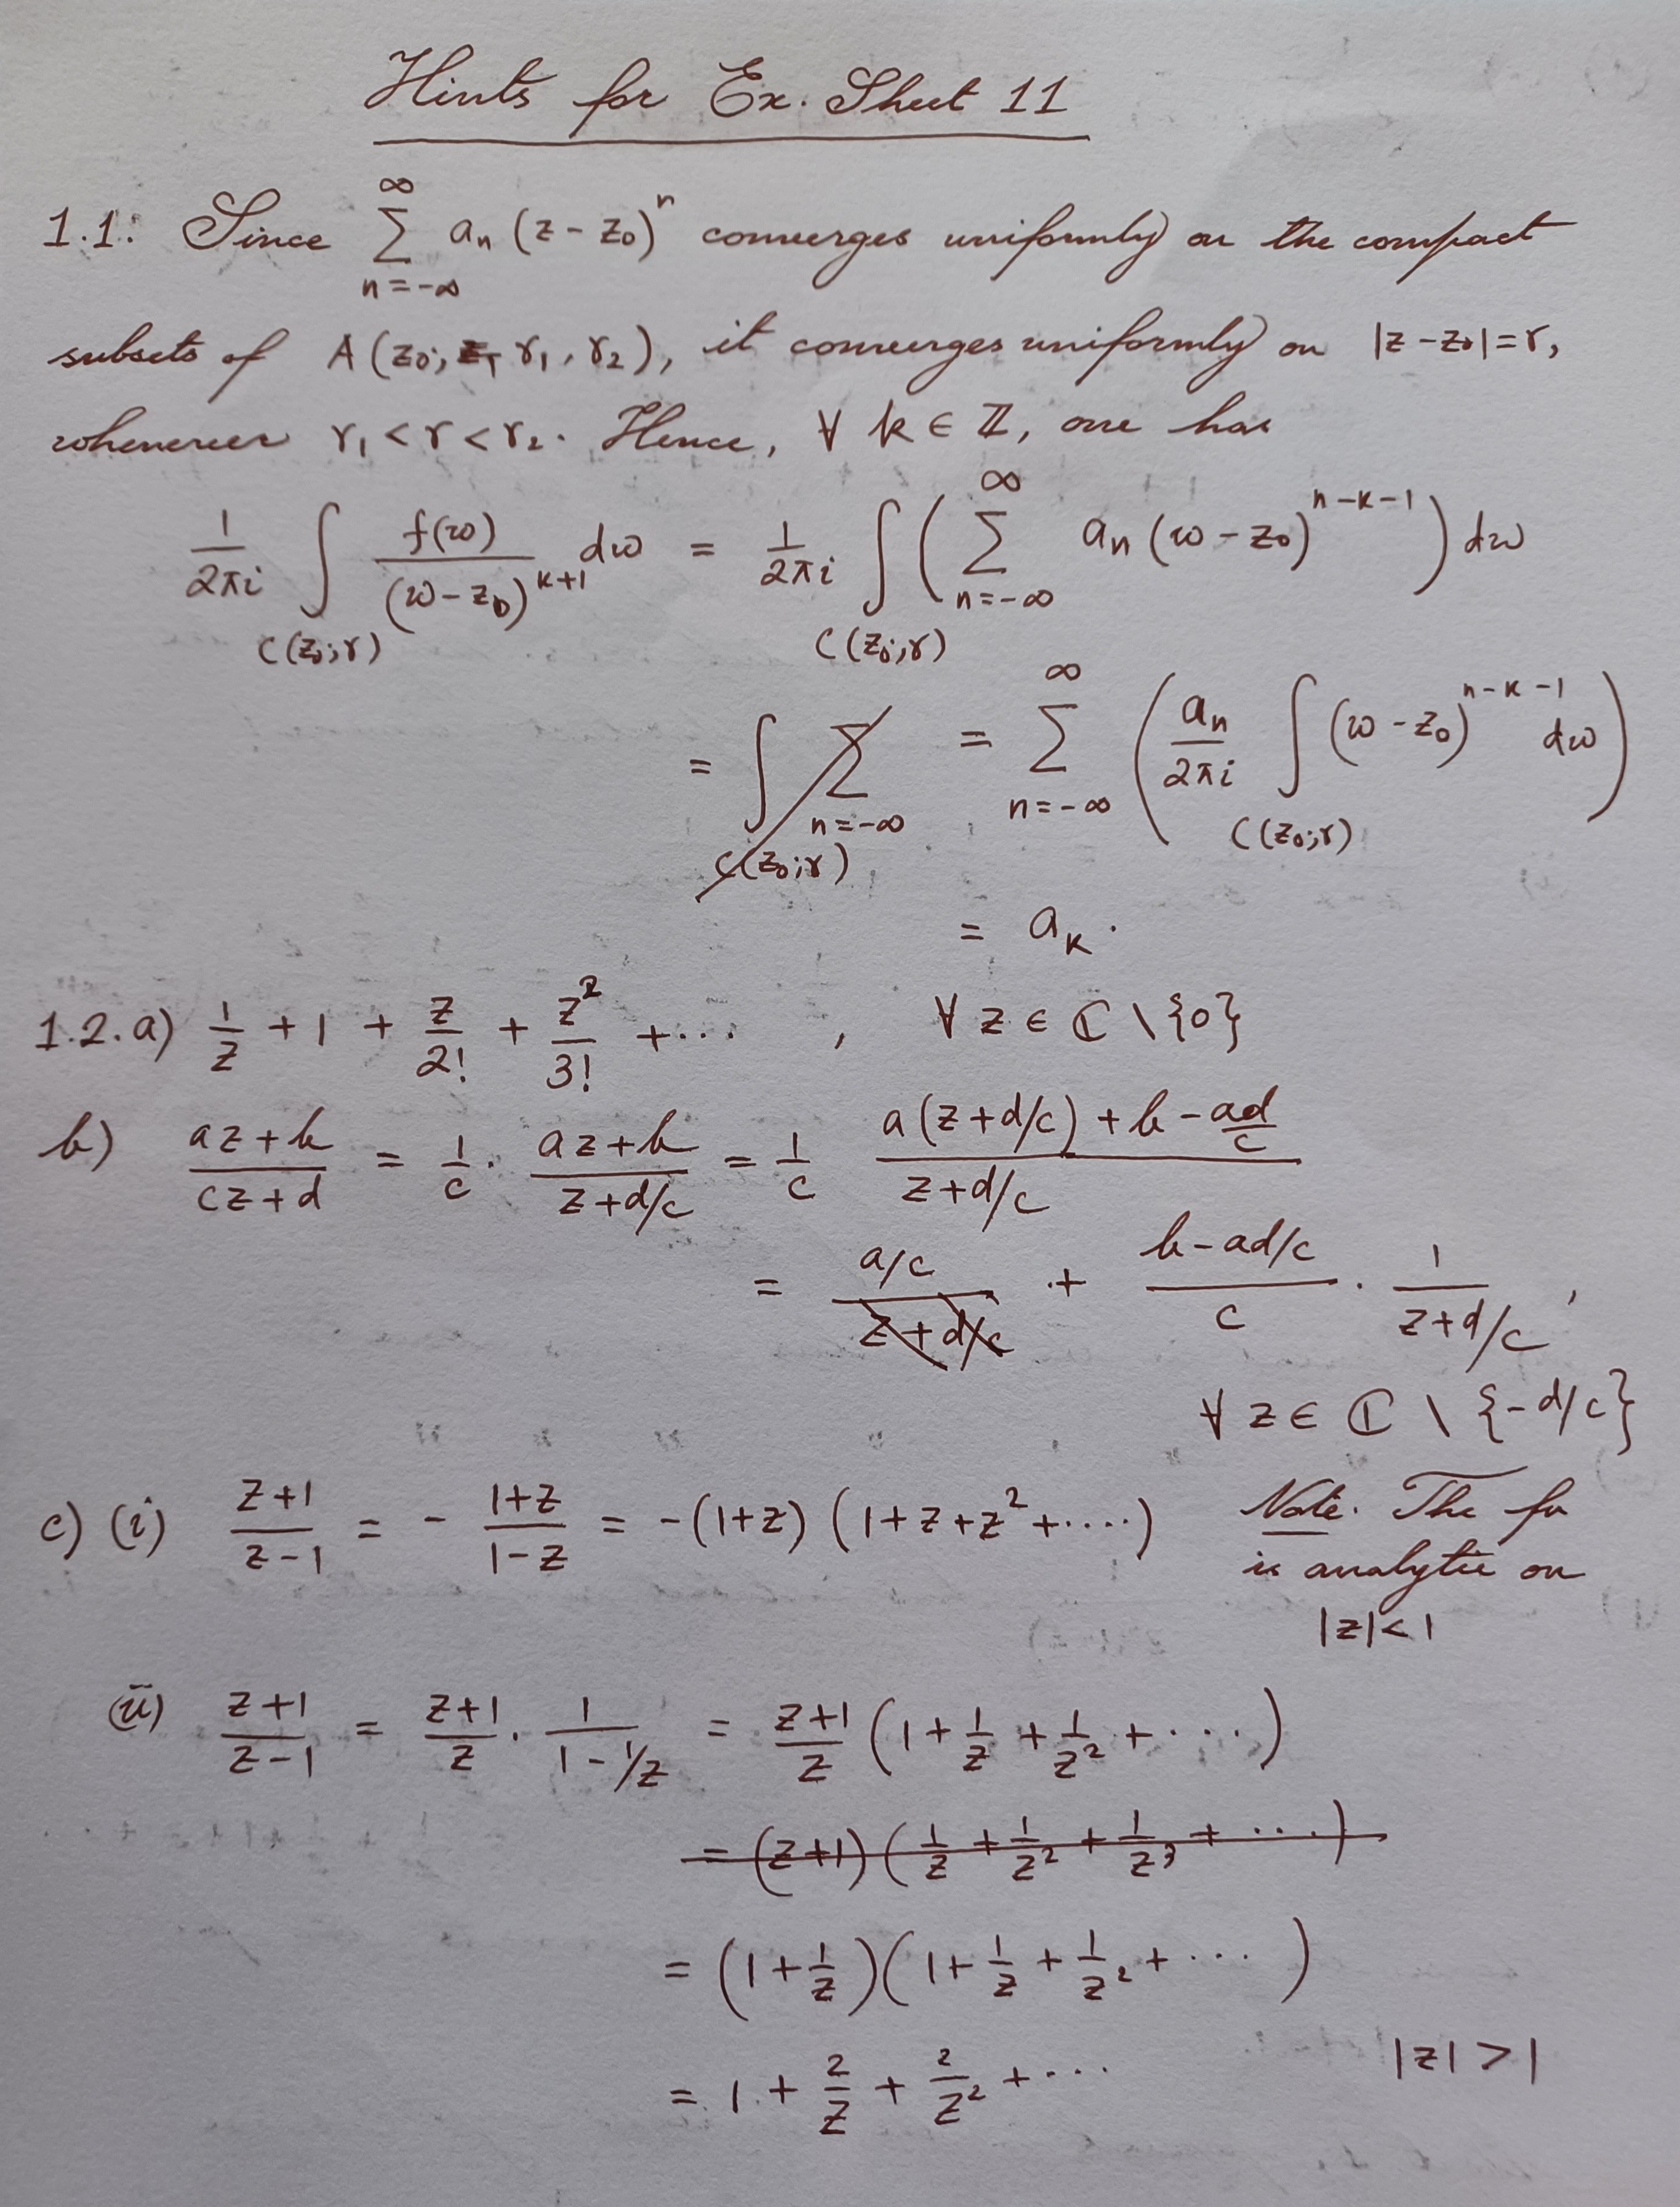 Hints for Ex. Sheet 11
1.1: Since $\sum_{n=-\infty}^{\infty} a_n (z-z_0)^n$ converges uniformly on the compact
subsets of $A(z_0; r_1, r_2)$, it converges uniformly on $|z-z_0|=r$,
whenever $r_1 < r < r_2$. Hence, $\forall\ k \in \mathbb{Z}$, one has
$\frac{1}{2\pi i} \int_{C(z_0;r)} \frac{f(w)}{(w-z_0)^{k+1}} dw = \frac{1}{2\pi i} \int_{C(z_0;r)} \left( \sum_{n=-\infty}^{\infty} a_n (w-z_0)^{n-k-1} \right) dw$
$= \int_{C(z_0;r)} \sum_{n=-\infty}$ $= \sum_{n=-\infty}^{\infty} \left( \frac{a_n}{2\pi i} \int_{C(z_0;r)} (w-z_0)^{n-k-1} dw \right)$
$= a_k.$
1.2. a) $\frac{1}{z} + 1 + \frac{z}{2!} + \frac{z^2}{3!} + \cdots$ , $\forall\ z \in \mathbb{C} \setminus \{0\}$
b) $\frac{az+b}{cz+d} = \frac{1}{c} \cdot \frac{az+b}{z+d/c} = \frac{1}{c} \frac{a(z+d/c)+b-\frac{ad}{c}}{z+d/c}$
$= \frac{a/c}{z+d/c} + \frac{b-ad/c}{c} \cdot \frac{1}{z+d/c}$ ,
$\forall\ z \in \mathbb{C} \setminus \{-d/c\}$
c) (i) $\frac{z+1}{z-1} = -\frac{1+z}{1-z} = -(1+z)(1+z+z^2+\cdots)$ Note. The fn
is analytic on
$|z|<1$
(ii) $\frac{z+1}{z-1} = \frac{z+1}{z} \cdot \frac{1}{1-1/z} = \frac{z+1}{z} \left( 1+\frac{1}{z}+\frac{1}{z^2}+\cdots \right)$
$= (z+1)\left( \frac{1}{z}+\frac{1}{z^2}+\frac{1}{z^3}+\cdots \right)$
$= \left( 1+\frac{1}{z} \right)\left( 1+\frac{1}{z}+\frac{1}{z^2}+\cdots \right)$
$= 1+\frac{2}{z}+\frac{2}{z^2}+\cdots$ $|z|>1$